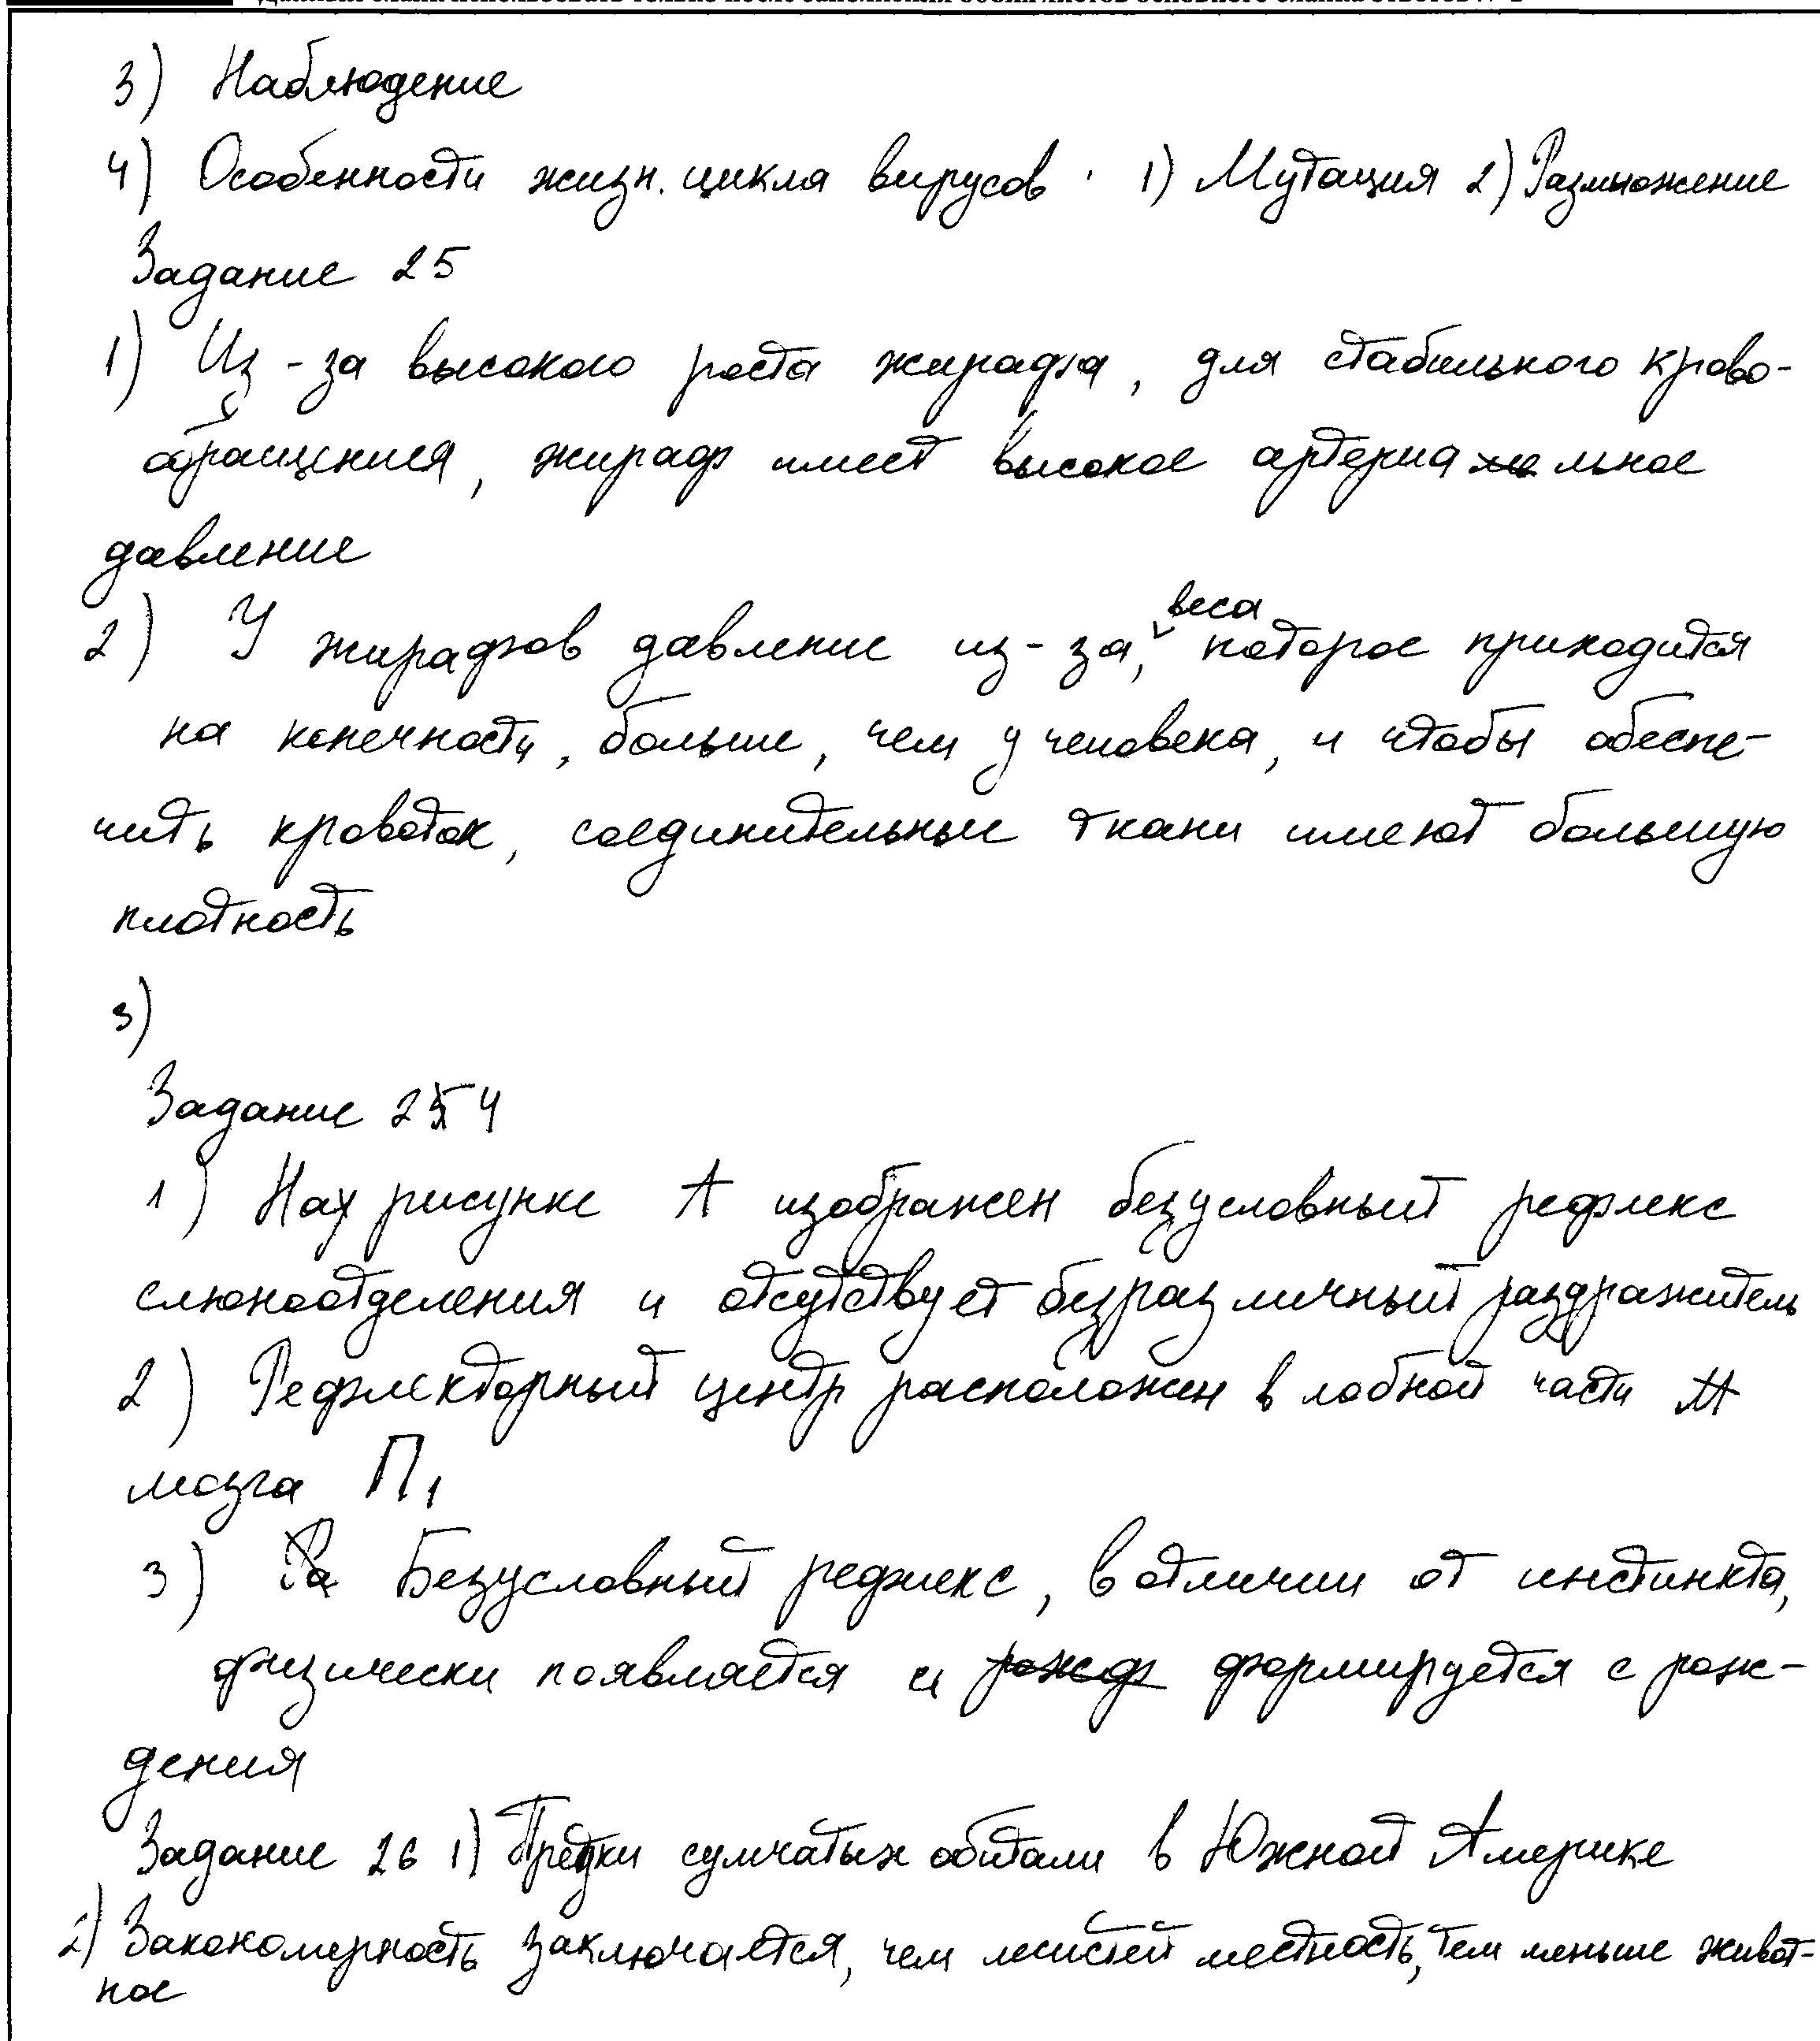 3) Наблюдение
4) Особенности жизн. цикла вирусов 1) Мутация 2) Размножение
Задание 25
1) Из-за высокого роста жирафа, для стабильного крово-
обращения, жираф имеет высокое артериальное
давление
2) У жирафов давление из-за веса, которое приходится
на конечности, больше, чем у человека, и чтобы обеспе-
чить кровоток, соединительные ткани имеют большую
плотность
3)
Задание 24
1) На рисунке А изображен безусловный рефлекс
слюноотделения и отсутствует безразличный раздражитель
2) Рефлекторный центр расположен в лобной части
мозга П1
3) Безусловный рефлекс, в отличии от инстинкта,
физически появляется и формируется с рож-
дения
Задание 26 1) Предки сумчатых обитали в Южной Америке
2) Закономерность заключается, чем лесистей местность, тем меньше живот-
ное